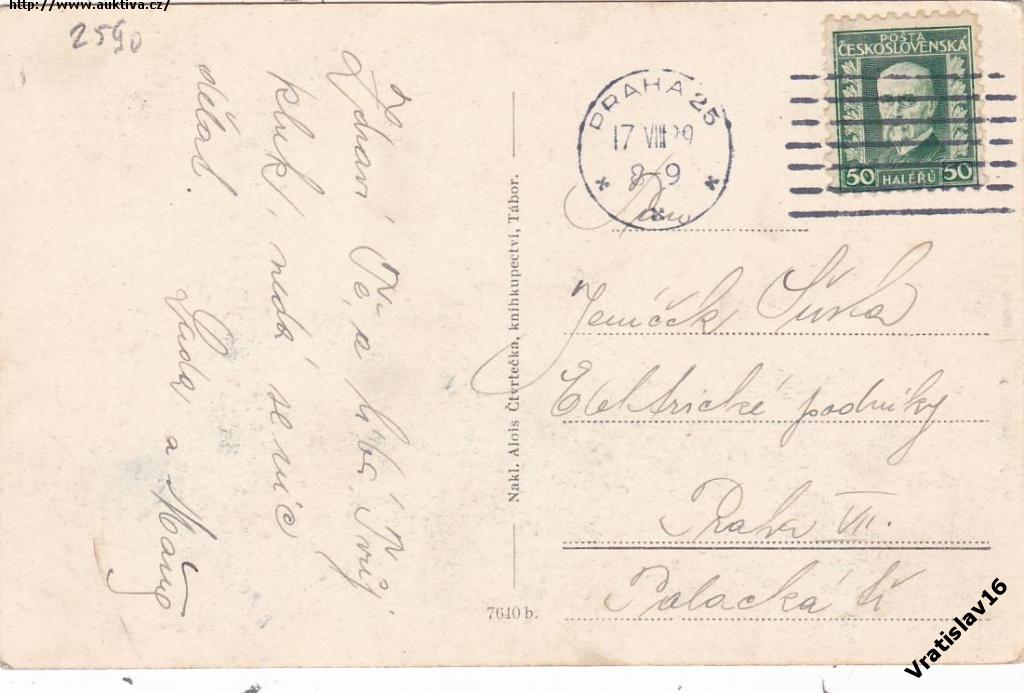 http://www.auktiva.cz/
2590
Zdraví Tě, a líbá Tvůj
kluk, nedá se nic
dělat.
Lída, a
Nakl. Alois Čtvrtečka, knihkupectví, Tábor.
7610 b.
PRAHA 25
17 VIII 29
8-9
POŠTA
ČESKOSLOVENSKÁ
50 HALÉŘŮ 50
Pan
Jeníček
Elektrické podniky
Praha VII.
Palacká tř
Vratislav16